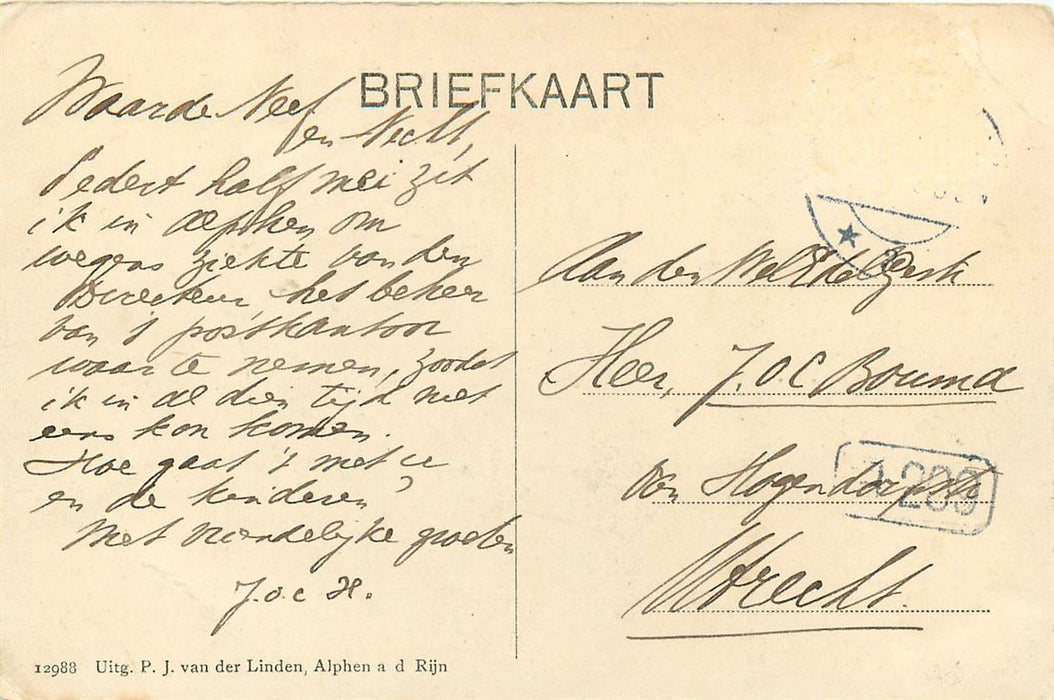 BRIEFKAART
Waarde Neef
en Nicht,
Sedert half mei zit
ik in Alphen om
wegens ziekte van den
Directeur het beheer
van 't postkantoor
waar te nemen, zoodat
ik in al dien tijd niet
eens kon komen.
Hoe gaat 't met u
en de kinderen?
Met vriendelijke groeten
J.o.c H.
Aan den WelEdelen
Heer, J.o.c Bouma
van Hogendorpstr
Utrecht.
12988 Uitg. P. J. van der Linden, Alphen a d Rijn